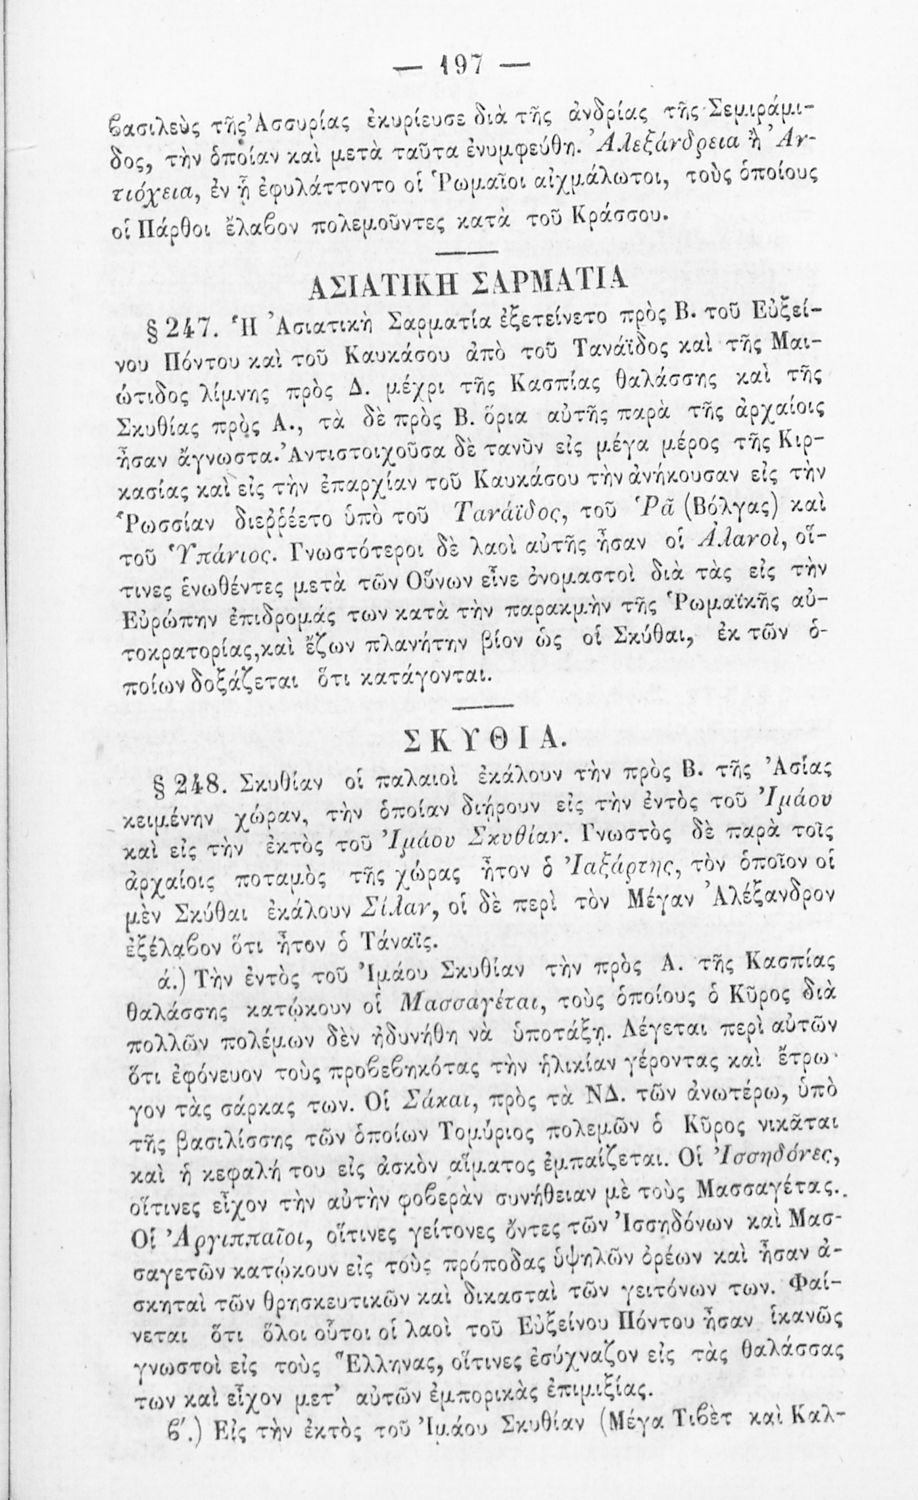 — 197 —
βασιλεὺς τῆς Ἀσσυρίας ἐκυρίευσε διὰ τῆς ἀνδρίας τῆς Σεμιράμι-
δος, τὴν ὁποίαν καὶ μετὰ ταῦτα ἐνυμφεύθη. Ἀλεξάνδρεια ἢ Ἀν-
τιόχεια, ἐν ᾗ ἐφυλάττοντο οἱ Ῥωμαῖοι αἰχμάλωτοι, τοὺς ὁποίους
οἱ Πάρθοι ἔλαβον πολεμοῦντες κατὰ τοῦ Κράσσου.
ΑΣΙΑΤΙΚΗ ΣΑΡΜΑΤΙΑ
§ 247. Ἡ Ἀσιατικὴ Σαρματία ἐξετείνετο πρὸς Β. τοῦ Εὐξεί-
νου Πόντου καὶ τοῦ Καυκάσου ἀπὸ τοῦ Τανάϊδος καὶ τῆς Μαι-
ώτιδος λίμνης πρὸς Δ. μέχρι τῆς Κασπίας θαλάσσης καὶ τῆς
Σκυθίας πρὸς Α., τὰ δὲ πρὸς Β. ὅρια αὐτῆς παρὰ τῆς ἀρχαίοις
ἦσαν ἄγνωστα. Ἀντιστοιχοῦσα δὲ τανῦν εἰς μέγα μέρος τῆς Κιρ-
κασίας καὶ εἰς τὴν ἐπαρχίαν τοῦ Καυκάσου τὴν ἀνήκουσαν εἰς τὴν
Ῥωσσίαν διεῤῥέετο ὑπὸ τοῦ Τανάϊδος, τοῦ Ῥᾶ (Βόλγας) καὶ
τοῦ Ὑπάνιος. Γνωστότεροι δὲ λαοὶ αὐτῆς ἦσαν οἱ Ἀλανοὶ, οἵ-
τινες ἑνωθέντες μετὰ τῶν Οὕνων εἶνε ὀνομαστοὶ διὰ τὰς εἰς τὴν
Εὐρώπην ἐπιδρομάς των κατὰ τὴν παρακμὴν τῆς Ῥωμαϊκῆς αὐ-
τοκρατορίας, καὶ ἔζων πλανήτην βίον ὡς οἱ Σκύθαι, ἐκ τῶν ὁ-
ποίων δοξάζεται ὅτι κατάγονται.
ΣΚΥΘΙΑ.
§ 248. Σκυθίαν οἱ παλαιοὶ ἐκάλουν τὴν πρὸς Β. τῆς Ἀσίας
κειμένην χώραν, τὴν ὁποίαν διῄρουν εἰς τὴν ἐντὸς τοῦ Ἰμάου
καὶ εἰς τὴν ἐκτὸς τοῦ Ἰμάου Σκυθίαν. Γνωστὸς δὲ παρὰ τοῖς
ἀρχαίοις ποταμὸς τῆς χώρας ἦτον ὁ Ἰαξάρτης, τὸν ὁποῖον οἱ
μὲν Σκύθαι ἐκάλουν Σίλαν, οἱ δὲ περὶ τὸν Μέγαν Ἀλέξανδρον
ἐξέλαβον ὅτι ἦτον ὁ Τάναϊς.
ά.) Τὴν ἐντὸς τοῦ Ἰμάου Σκυθίαν τὴν πρὸς Α. τῆς Κασπίας
θαλάσσης κατῴκουν οἱ Μασσαγέται, τοὺς ὁποίους ὁ Κῦρος διὰ
πολλῶν πολέμων δὲν ἠδυνήθη νὰ ὑποτάξῃ. Λέγεται περὶ αὐτῶν
ὅτι ἐφόνευον τοὺς προβεβηκότας τὴν ἡλικίαν γέροντας καὶ ἔτρω-
γον τὰς σάρκας των. Οἱ Σάκαι, πρὸς τὰ ΝΔ. τῶν ἀνωτέρω, ὑπὸ
τῆς βασιλίσσης τῶν ὁποίων Τομύριος πολεμῶν ὁ Κῦρος νικᾶται
καὶ ἡ κεφαλή του εἰς ἀσκὸν αἵματος ἐμπαίζεται. Οἱ Ἰσσηδόνες,
οἵτινες εἶχον τὴν αὐτὴν φοβερὰν συνήθειαν μὲ τοὺς Μασσαγέτας.
Οἱ Ἀργιππαῖοι, οἵτινες γείτονες ὄντες τῶν Ἰσσηδόνων καὶ Μασ-
σαγετῶν κατῴκουν εἰς τοὺς πρόποδας ὑψηλῶν ὀρέων καὶ ἦσαν ἀ-
σκηταὶ τῶν θρησκευτικῶν καὶ δικασταὶ τῶν γειτόνων των. Φαί-
νεται ὅτι ὅλοι οὗτοι οἱ λαοὶ τοῦ Εὐξείνου Πόντου ἦσαν ἱκανῶς
γνωστοὶ εἰς τοὺς Ἕλληνας, οἵτινες ἐσύχναζον εἰς τὰς θαλάσσας
των καὶ εἶχον μετ' αὐτῶν ἐμπορικὰς ἐπιμιξίας.
β΄.) Εἰς τὴν ἐκτὸς τοῦ Ἰμάου Σκυθίαν (Μέγα Τιβὲτ καὶ Καλ-